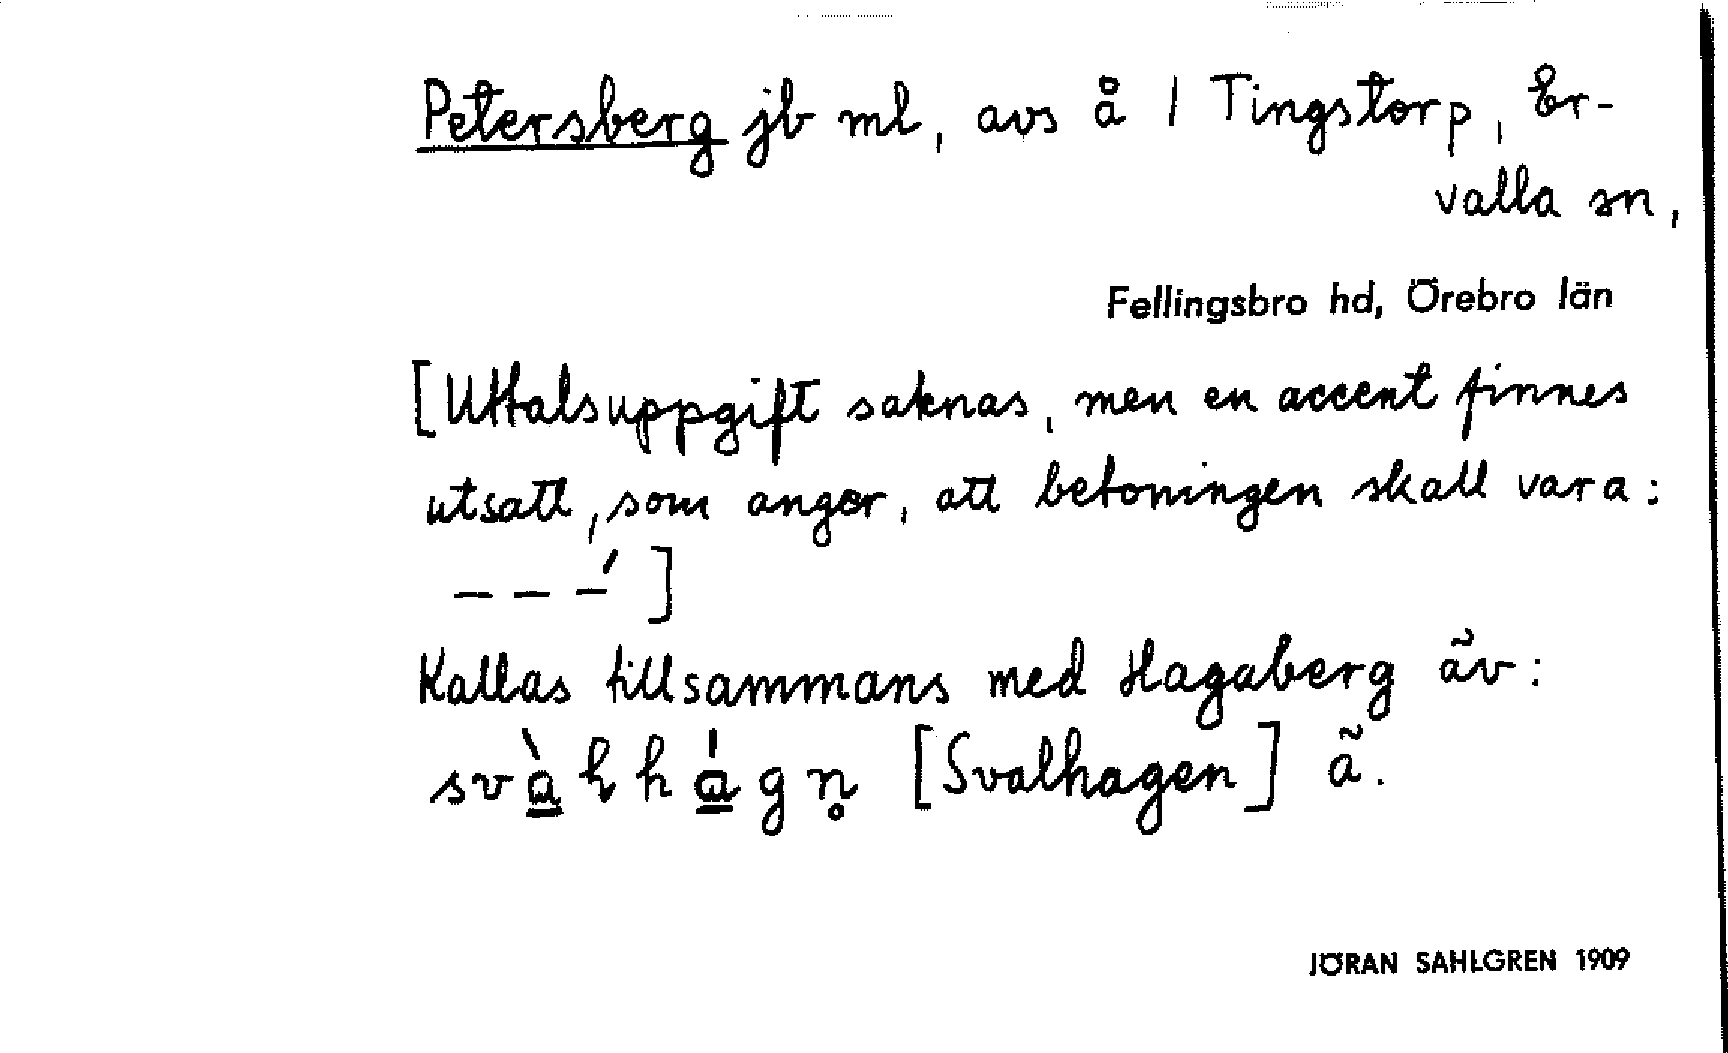 Petersberg jb ml, avs å 1 Tingstorp, Er-
valla sn,
Fellingsbro hd, Örebro län
[Uttalsuppgift saknas, men en accent finnes
utsatt, som anger, att betoningen skall vara:
– – –́ ]
Kallas tillsammans med Hagaberg äv:
[Svalhagen] ã.
JÖRAN SAHLGREN 1909